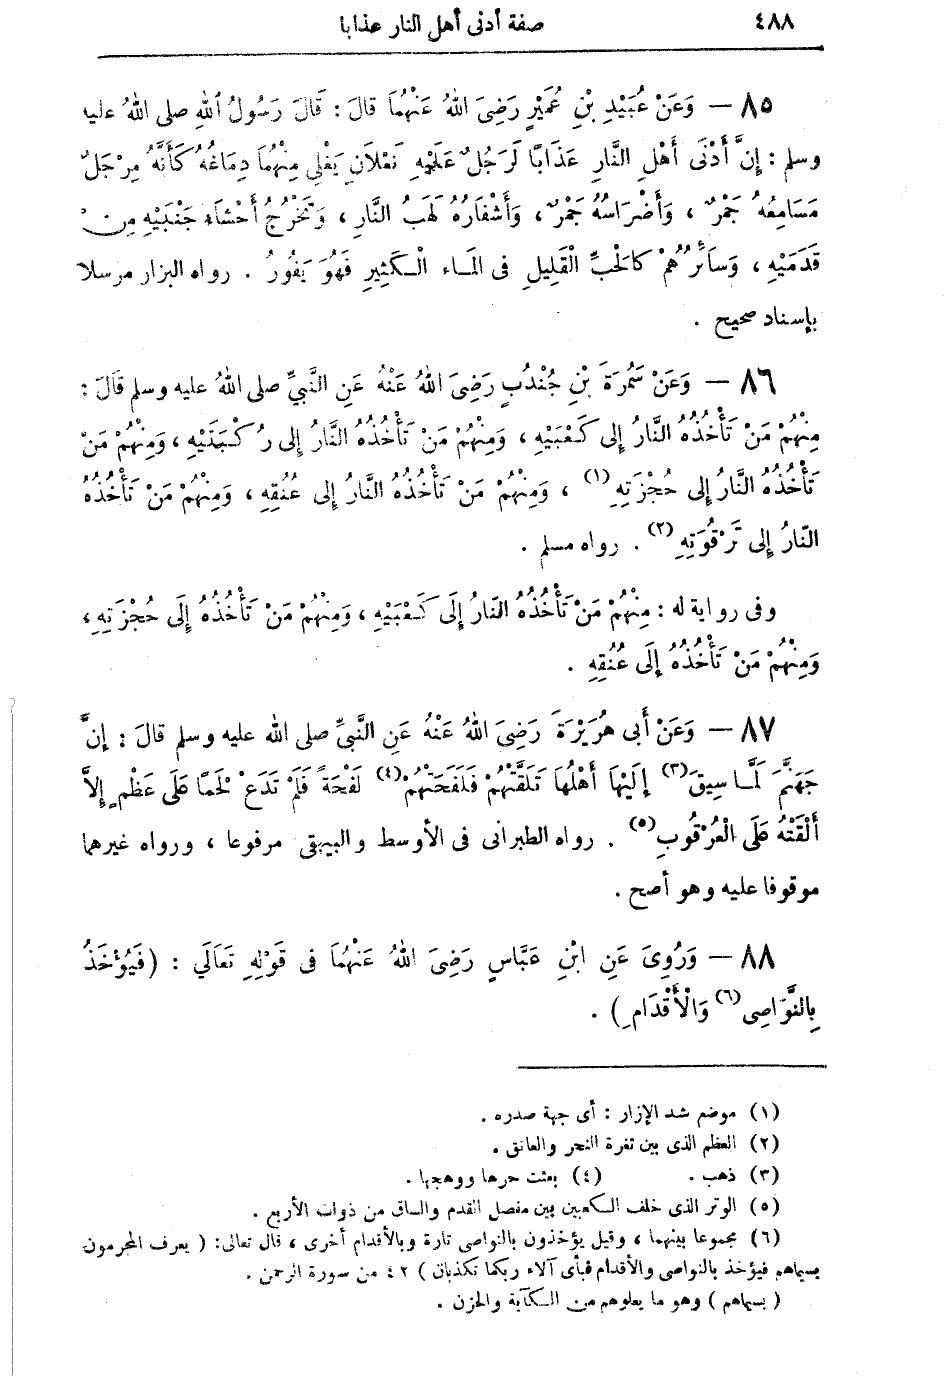 ٤٨٨ صفة أدنى أهل النار عذابا
٨٥ — وَعَنْ عُبَيْدِ بْنِ عُمَيْرٍ رَضِىَ اللهُ عَنْهُمَا قَالَ : قَالَ رَسُولُ اللهِ صلى اللهُ عليه
وسلم : إِنَّ أَدْنَى أَهْلِ النَّارِ عَذَابًا لَرَجُلٌ عَلَيْهِ نَعْلَانِ يَغْلِى مِنْهُمَا دِمَاغُهُ كَأَنَّهُ مِرْجَلٌ
مَسَامِعُهُ جَمْرٌ ، وَأَضْرَاسُهُ جَمْرٌ ، وَأَشْفَارُهُ لَهَبُ النَّارِ ، وَتَخْرُجُ أَحْشَاءِ جَنْبَيْهِ مِنْ
قَدَمَيْهِ ، وَسَائِرُهُمْ كالْحَبِّ الْقَلِيلِ فى الْمَاء الْكَثِيرِ فَهُوَ يَفُورُ . رواه البزار مرسلا
بإسناد صحيح .
٨٦ — وَعَنْ سَمُرَةَ بْنِ جُنْدُبٍ رَضِىَ اللهُ عَنْهُ عَنِ النَّبِيِّ صلى اللهُ عليه وسلم قَالَ :
مِنْهُمْ مَنْ تَأْخُذُهُ النَّارُ إلى كَعْبَيْهِ ، وَمِنْهُمْ مَنْ تَأْخُذُهُ النَّارُ إلى رُكْبَتَيْهِ ، وَمِنْهُمْ مَنْ
تَأْخُذُهُ النَّارُ إلى حُجْزَتِهِ (١) ، وَمِنْهُمْ مَنْ تَأْخُذُهُ النَّارُ إلى عُنُقِهِ ، وَمِنْهُمْ مَنْ تَأْخُذُهُ
النَّارُ إلى تَرْقُوَتِهِ (٢) . رواه مسلم .
وفى رواية له : مِنْهُمْ مَنْ تَأْخُذُهُ النَّارُ إِلَى كَعْبَيْهِ ، وَمِنْهُمْ مَنْ تَأْخُذُهُ إِلَى حُجْزَتِهِ ،
وَمِنْهُمْ مَنْ تَأْخُذُهُ إِلَى عُنُقِهِ .
٨٧ — وَعَنْ أَبى هُرَيْرَةَ رَضِىَ اللهُ عَنْهُ عَنِ النَّبِيِّ صلى الله عليه وسلم قالَ : إِنَّ
جَهَنَّمَ لَمَّا سِيقَ (٣) إِلَيْهَا أَهْلُهَا تَلَقَّتْهُمْ فَلَفَحَتْهُمْ (٤) لَفْحَةً فَلَمْ تَدَعْ لَحْمًا عَلَى عَظْمٍ إِلاَّ
أَلْقَتْهُ عَلَى الْعُرْقُوبِ (٥) . رواه الطبرانى فى الأوسط والبيهقى مرفوعا ، ورواه غيرهما
موقوفا عليه وهو أصح .
٨٨ — وَرُوِىَ عَنِ ابْنِ عَبَّاسٍ رَضِىَ اللهُ عَنْهُمَا فى قَوْلِهِ تَعَالَي : (فَيُؤْخَذُ
بِالنَّوَاصِى (٦) وَالْأَقْدَامِ) .
(١) موضع شد الإزار : أى جهة صدره .
(٢) العظم الذى بين ثغرة النحر والعاتق .
(٣) ذهب . (٤) بعثت حرها ووهجها .
(٥) الوتر الذى خلف الكعبين بين مفصل القدم والساق من ذوات الأربع .
(٦) مجموعا بينهما ، وقيل يؤخذون بالنواصى تارة وبالأقدام أخرى ، قال تعالى: ( يعرف المجرمون
بسيماهم فيؤخذ بالنواصى والأقدام فبأى آلاء ربكما تكذبان ) ٤٢ من سورة الرحمن .
( بسيماهم ) وهو ما يعلوهم من الكآبة والحزن .